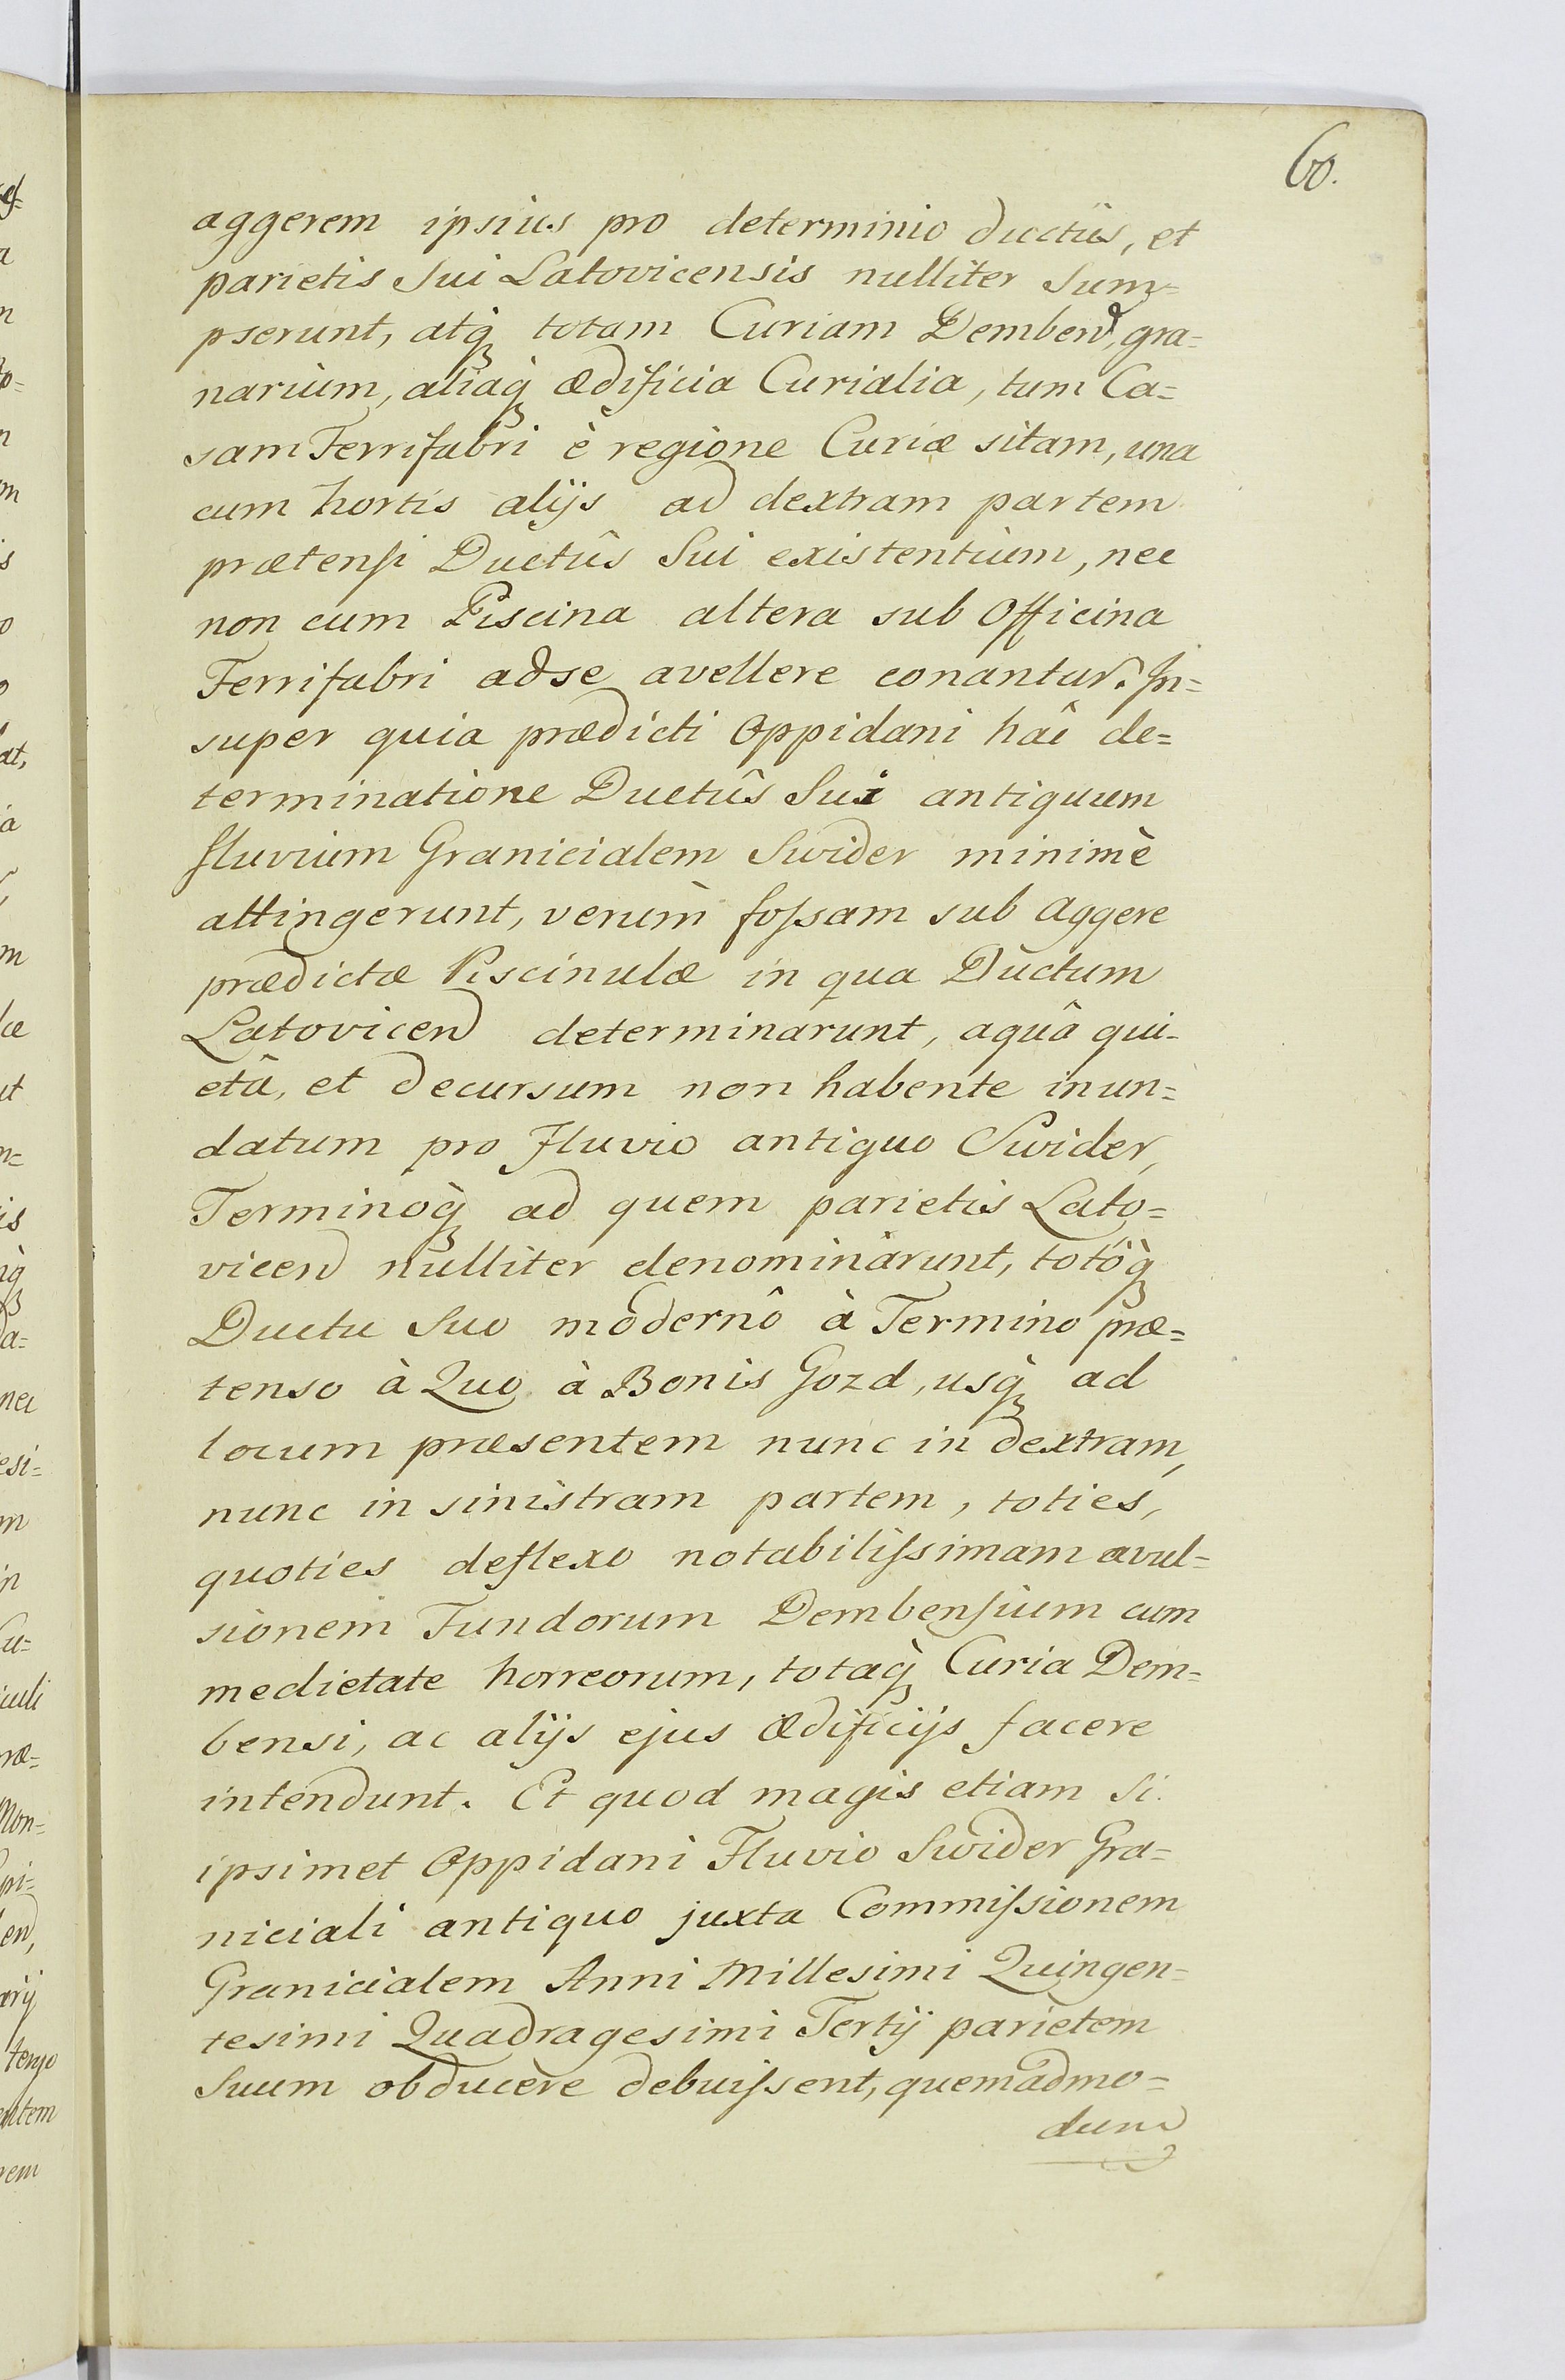 60.
aggerem ipsius pro determinio ductûs, et
parietis Sui Latovicensis nulliter Sum=
pserunt, atq̀ꝫ totam Curiam Demben̄, gra=
narium, aliaq̀ꝫ ædificia Curialia, tum Ca=
sam Ferrifabri è regione Curiæ sitam, una
cum hortis alijs ad dextram partem
prætenſi Ductûs Sui existentium, nec
non cum Piscina altera sub Officina
Ferrifabri adse avellere conantur. In=
super quia prædicti Oppidani hâc de=
terminatione Ductûs Sui antiquum
fluvium Granicialem Swider minimè
attingerunt, verùm foſsam sub Aggere
prædictæ Piscinulæ in qua Ductum
Latovicen̄ determinarunt, aquâ qui=
etâ, et decursum non habente inun=
datum pro Fluvio antiquo Swider,
Terminoq̀ꝫ ad quem parietis Lato=
vicen̄ nulliter denominârunt, totôq̀ꝫ
Ductu Suo modernô à Termino præ=
tenso à Quo à Bonis Gozd, usq̀ꝫ ad
locum præsentem nunc in dextram,
nunc in sinistram partem, toties,
quoties deflexo notabiliſsimam avul=
sionem Fundorum Dembenſium cum
medietate horreorum, totaq̀ꝫ Curia Dem=
bensi, ac alijs ejus ædificijs facere
intendunt. Et quod magis etiam Si
ipsimet Oppidani Fluvio Swider Gra=
niciali antiquo juxta Commiſsionem
Granicialem Anni Millesimi Quingen=
tesimi Quadragesimi Tertij parietem
Suum obducere debuiſsent, quemadmo=
dum